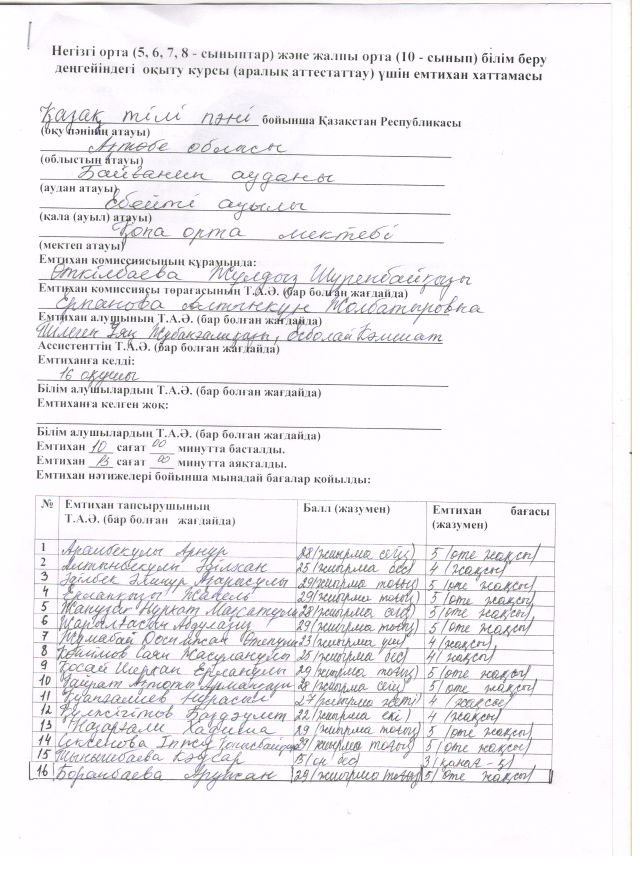 Негізгі орта (5, 6, 7, 8 - сыныптар) және жалпы орта (10 - сынып) білім беру
деңгейіндегі оқыту курсы (аралық аттестаттау) үшін емтихан хаттамасы
Қазақ тілі пәні бойынша Қазақстан Республикасы
(оқу пәнінің атауы)
Ақтөбе облысы
(облыстың атауы)
Байғанин ауданы
(аудан атауы)
Ебейті ауылы
(қала (ауыл) атауы)
Қопа орта мектебі
(мектеп атауы)
Емтихан комиссиясының құрамында:
Өткілбаева Жұлдыз
Емтихан комиссиясы төрағасының Т.А.Ә. (бар болған жағдайда)
Ерпанова Алтынкүн Жолбатыровна
Емтихан алушының Т.А.Ә. (бар болған жағдайда)
Шілеген Ұяң Есболай Кәмшат
Ассистенттің Т.А.Ә. (бар болған жағдайда)
Емтиханға келді:
16 оқушы
Білім алушылардың Т.А.Ә. (бар болған жағдайда)
Емтиханға келген жоқ:
Білім алушылардың Т.А.Ә. (бар болған жағдайда)
Емтихан 10 сағат 00 минутта басталды.
Емтихан 13 сағат 00 минутта аяқталды.
Емтихан нәтижелері бойынша мынадай бағалар қойылды:
№ Емтихан тапсырушының Т.А.Ә. (бар болған жағдайда) Балл (жазумен) Емтихан бағасы (жазумен)
1 Арнұр 28 /жиырма сегіз/ 5 /өте жақсы/
2 25 /жиырма бес/ 4 /жақсы/
3 29 /жиырма тоғыз/ 5 /өте жақсы/
4 29 /жиырма тоғыз/ 5 /өте жақсы/
5 Нұрхат 28 /жиырма сегіз/ 5 /өте жақсы/
6 Абдулазиз 29 /жиырма тоғыз/ 5 /өте жақсы/
7 Жұмабай Досымжан 23 /жиырма үш/ 4 /жақсы/
8 Саян Жасұланұлы 25 /жиырма бес/ 4 /жақсы/
9 Қосай Шерхан Ерланұлы 29 /жиырма тоғыз/ 5 /өте жақсы/
10 Қайрат Ақтоты 28 /жиырма сегіз/ 5 /өте жақсы/
11 Нұрасыл 27 /жиырма жеті/ 4 /жақсы/
12 Бағдәулет 22 /жиырма екі/ 4 /жақсы/
13 Назарғали 29 /жиырма тоғыз/ 5 /өте жақсы/
14 Сексенова 29 /жиырма тоғыз/ 5 /өте жақсы/
15 Тынышбаева Кәусар 15 /он бес/ 3
16 Боранбаева Аружан 29 /жиырма тоғыз/ 5 /өте жақсы/